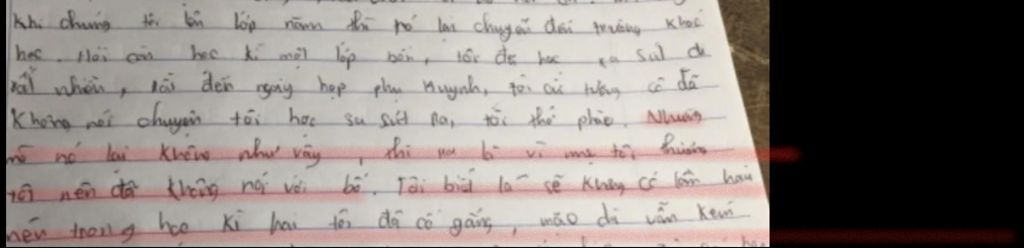 Khi chúng tôi lên lớp năm thì nó lại chuyển đến trường khác
học. Hồi còn học kì một lớp bốn, tôi đã học sa sút đi
rất nhiên, rồi đến ngày họp phụ huynh, tôi cứ tưởng cô đã
không nói chuyện tôi học sa sút ra, tôi thở phào. Nhưng
nó lại không như vậy, thì ra là vì mẹ tôi thương
tôi nên đã không nói với bố. Tôi biết là sẽ không có lần hai
nên trong học kì hai tôi đã cố gắng, mặc dù vẫn kém